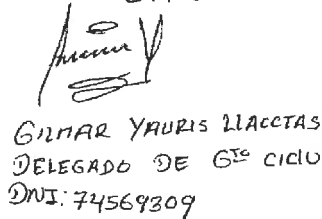 GILMAR YAURIS LLACCTAS
DELEGADO DE 6TO CICLO
DNI: 74569309